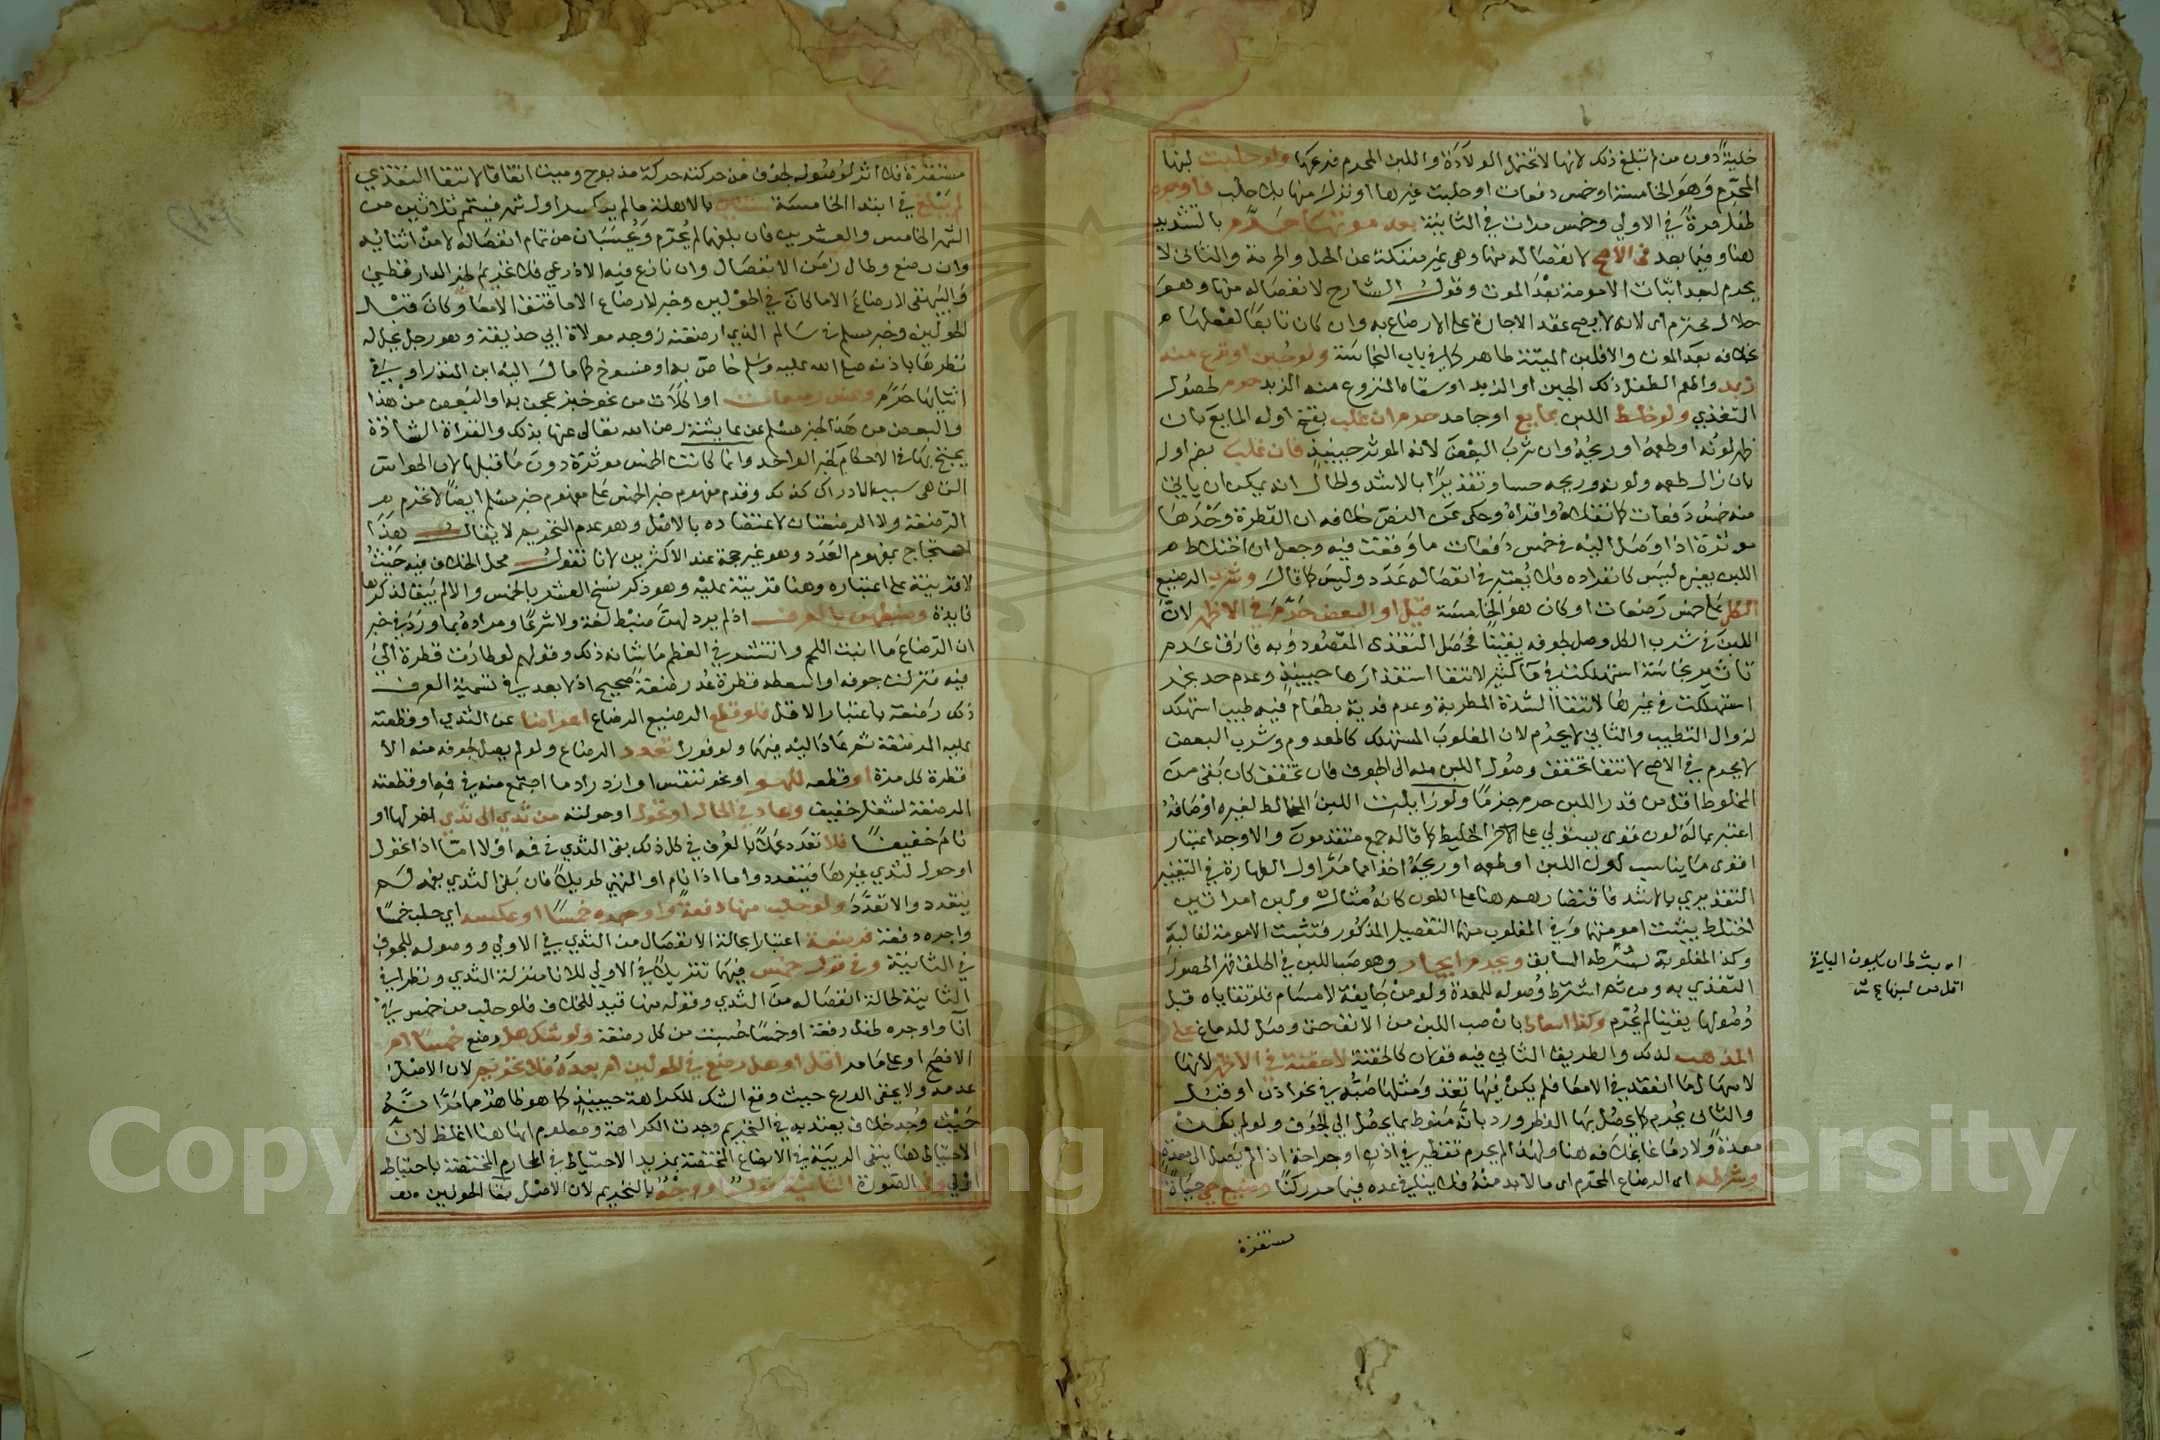 خلية دون من لم تبلغ ذلك لانها لا تحتمل الولادة واللبن المحرم فرعها ولو حلبت لبنها
المحرم وهو الخامسة او خمس دفعات او حلبت غيرها او نزل منها بلا حلب فاوجره
طفل مرة في الاولي وخمس مرات في الثانية بعد موتها حرم بالتشديد
هنا وفيما بعد في الاصح لانفصاله منها وهي غير منفكة عن الحل والحرمة والثاني لا
يحرم لبعد اثبات الامومة بعد الموت وقول الشارح لانفصاله منها وهو
حلال محترم اي لانه لا يصح عقد الاجارة على الارضاع به وان كان تابعا لفعلها
بخلافه بعد الموت والا فلبن الميتة طاهر كما في باب النجاسة ولو جبن او نزع منه
زبد واطعم الطفل ذلك الجبن او الزبد او سقاه المنزوع منه الزبد حرم لحصول
التغذي ولو خلط اللبن بمايع او جامد حرم ان غلب بفتح اوله المايع بان
ظهر لونه او طعمه او ريحه وان شرب البعض لانه الموثر حينيذ فان غلب بضم اوله
بان زال طعمه ولونه وريحه حسا وتقديرا بالاشد والحال انه يمكن ان ياتي
منه خمس دفعات كما نقلاه واقراه وحكي عن النص خلافه ان القطرة وحدها
موثرة اذا وصل اليه في خمس دفعات ما وقعت فيه وجعل ان اختلاط
اللبن بغيره ليس كانفراده فلا يعتبر في انفصاله عدد وليس كما قال وشرب الرضيع
الكل على خمس رضعات او كان هو الخامسة قيل او البعض حرم في الاظهر لان
اللبن في شرب الكل وصل لجوفه يقينا فحصل التغذي المقصود وبه فارق عدم
تاثير نجاسة استهلكت في ماء كثير لانتفا استقذارها حينيذ وعدم حد بخمر
استهلكت في غيرها لانتفا الشدة المطربة وعدم فدية بطعام فيه طيب استهلك
لزوال التطيب والثاني لا يحرم لان المغلوب المستهلك كالمعدوم وشرب البعض
لا يحرم في الاصح لانتفا تحقق وصول اللبن منه الى الجوف فان تحقق كان بقي من
المخلوط اقل من قدر اللبن حرم جزما ولو زايلت اللبن المخالط لغيره اوصافه
اعتبر بما له لون قوي يستولي على الخليط كما قاله جمع متقدمون والاوجه اعتبار
اقوى ما يناسب لون اللبن او طعمه او ريحه اخذا مما مر اول الطهارة في التغيير
التقديري بالاشد فاقتصارهم هنا على اللون كانه مثال ولبن امراتين
اختلط يثبت امومتها وفي المغلوب منها التفصيل المذكور فتثبت الامومة لغالبة
وكذا المغلوبة بشرطه السابق ويحرم ايجار وهو صب اللبن في الحلق قهرا لحصول
التغذي به ومن ثم اشترط وصوله للمعدة ولو من جايفة لا مسام فلو تقاياه قبل
وصولها يقينا لم يحرم وكذا اسعاط بان صب اللبن من الانف حتى وصل للدماغ على
المذهب لذلك والطريق الثاني فيه قولان كالحقنة لا حقنة في الاظهر لانها
لاسهال ما انعقد في الامعا فلم يكن فيها تغذ ومثلها صبه في نحو اذن او قبل
والثاني يحرم كما يحصل بها الفطر ورد بانه منوط بما يصل الى الجوف ولو لم يكن
معدة ولا دماغا بخلافه هنا ولهذا لم يحرم تقطير في اذن او جراحة اذا لم يصل الى معدة
وشرطه اي الرضاع المحرم اي ما لا بد منه فلا ينافي عده فيما مر ركنا رضيع حي حياة
مستقرة
اي بشرط ان يكون الباقي
اقل من لبنها
مستقرة فلا اثر لوصوله لجوف من حركته حركة مذبوح وميت اتفاقا لانتفا التغذي
لم يبلغ في ابتدا الخامسة سنتين بالاهلة ما لم ينكسر اول شهر فيتمم ثلاثين من
الشهر الخامس والعشرين فان بلغهما لم يحرم ويحسبان من تمام انفصاله لا من اثنائه
وان رضع وطال زمن الانفصال وان نازع فيه الاذرعي فلا تحريم لخبر الدارقطني
والبيهقي لا رضاع الا ما كان في الحولين وخبر لا رضاع الا ما فتق الامعا وكان قبل
الحولين وخبر مسلم في سالم الذي ارضعته زوجة مولاه ابي حذيفة وهو رجل يحل له
نظرها باذنه صلى الله عليه وسلم خاص به او منسوخ كما مال اليه ابن المنذر او بقي
اثنائها حرم وخمس رضعات او اكلات من نحو خبز عجن به او البعض من هذا
والبعض من هذا لخبر مسلم عن عايشة رضي الله تعالى عنها بذلك والقراة الشاذة
يحتج بها في الاحكام كخبر الواحد وانما كانت الخمس موثرة دون ما قبلها لان الحواس
التي هي سبب الادراك كذلك وقدم مفهوم خبر الخمس على مفهوم خبر مسلم ايضا لا تحرم
الرضعة ولا الرضعتان لاعتضاده بالاصل وهو عدم التحريم لا يقال هذا
احتجاج بمفهوم العدد وهو غير حجة عند الاكثرين لانا نقول محل الخلاف فيه حيث
لا قرينة على اعتباره وهنا قرينة عليه وهو ذكر نسخ العشر بالخمس والا لم يبق لذكرها
فايدة وضبطهن بالعرف اذ لم يرد لهن ضبط لغة ولا شرعا ومراده بما ورد في خبر
ان الرضاع ما انبت اللحم وانتشر في العظم ما شانه ذلك وقولهم لو طارت قطرة الى
فيه فنزلت جوفه او اسعطه قطرة عد رضعة صحيح اذ لا بعد في تسمية العرف
ذلك رضعة باعتبار الاقل فلو قطع الرضيع الرضاع اعراضا عن الثدي او قطعته
عليه المرضعة ثم عاد اليه فيهما ولو فورا تعدد الرضاع ولو لم يصل لجوفه منه الا
قطرة كل مرة او قطعه للهو او نحو تنفس او ازدراد ما اجتمع منه في فيه او قطعته
المرضعة لشغل خفيف وعاد في الحال او تحول او حولته من ثدي الى ثدي اخر لها او
نام خفيفا فلا تعدد عملا بالعرف في كل ذلك بقي الثدي في فمه او لا اما اذا تحول
او حول لثدي غيرها فيتعدد واما اذا نام او التهى طويلا فان بقي الثدي بفمه لم
يتعدد والا تعدد ولو حلب منها دفعة واوجره خمسا او عكسه اي حلب خمسا
واوجره دفعة فرضعة اعتبارا بحالة الانفصال من الثدي في الاولي ووصوله للجوف
في الثانية وفي قول خمس فيهما تنزيلا في الاولي للانا منزلة الثدي ونظرا في
الثانية لحالة انفصاله من الثدي وقوله منها قيد للخلاف فلو حلب من خمس في
انا واوجره طفل دفعة او خمسا حسبت من كل رضعة ولو شك هل رضع خمسا ام
اقل او هل رضع في الحولين ام بعده فلا تحريم لان الاصل
عدمه ولا يخفى الورع حيث وقع الشك للكراهة حينيذ كما هو ظاهر مما مر انه
حيث وجد خلاف يعتد به في التحريم وجدت الكراهة ومعلوم انها هنا اغلظ لان
الاحتياط هنا ينفي الريبة في الابضاع المختصة بمزيد الاحتياط في المحارم المختصة باحتياط
اولى وفي الصورة الثانية قول او وجه بالتحريم لان الاصل بقا الحولين